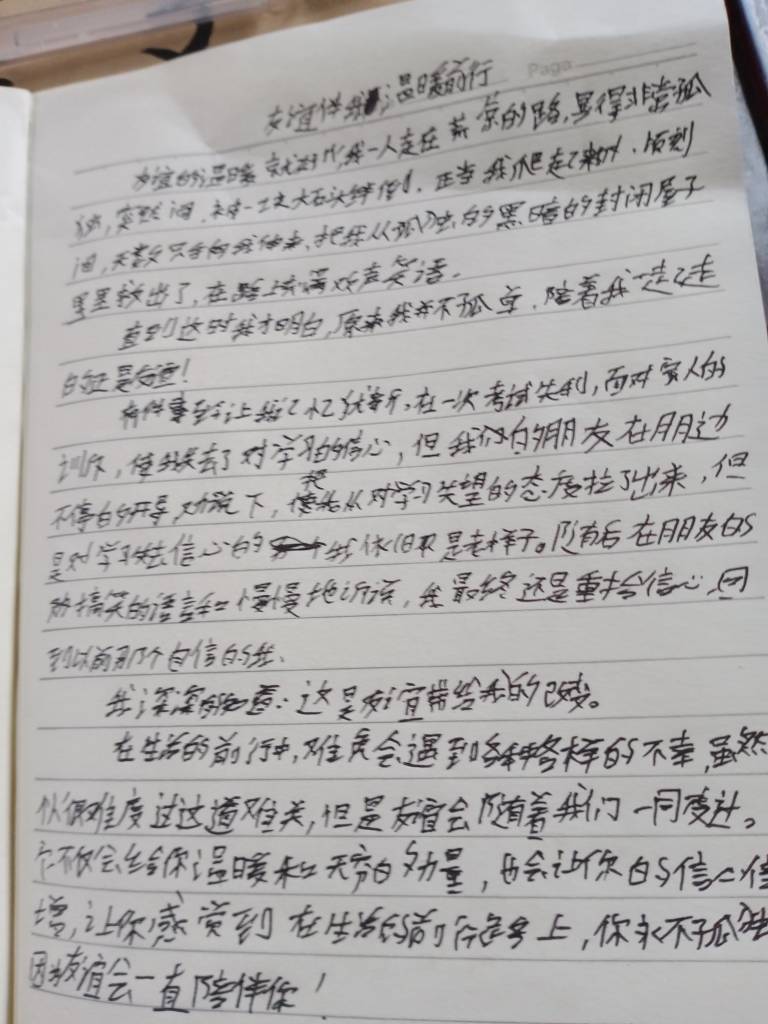 友谊伴我温暖前行
Page
友谊的温暖就, 我一人走在 的路,显得非常孤
独,突然间,被一块大石头绊倒,正当我爬起来时,顷刻
间,无数只手向我伸来,把我从孤独的黑暗的封闭屋子
里释放出了,在路上充满欢声笑语。
直到这时我才明白,原来我并不孤单,陪着我一起走
的还是友谊!
有件事至今让我记忆犹新,在一次考试失利,面对家人的
训斥,使我失去了对学习的信心,但我的朋友在身边
不停的开导,劝说下,把我从对学习失望的态度拉了出来,但
是对学习失去信心的我依旧是老样子。随后在朋友的
搞笑的语言和慢慢地诉说,我最终还是重拾信心,回
到以前那个自信的我。
我深深的知道:这是友谊带给我的改变。
在生活的前行中,难免会遇到各种各样的不幸,虽然
似很难度过这道难关,但是友谊会随着我们一同度过。
它不仅会给你温暖和无穷的力量,也会让你的信心倍
增,让你感觉到在生活的前行路上,你永不孤独
因为友谊会一直陪伴你!